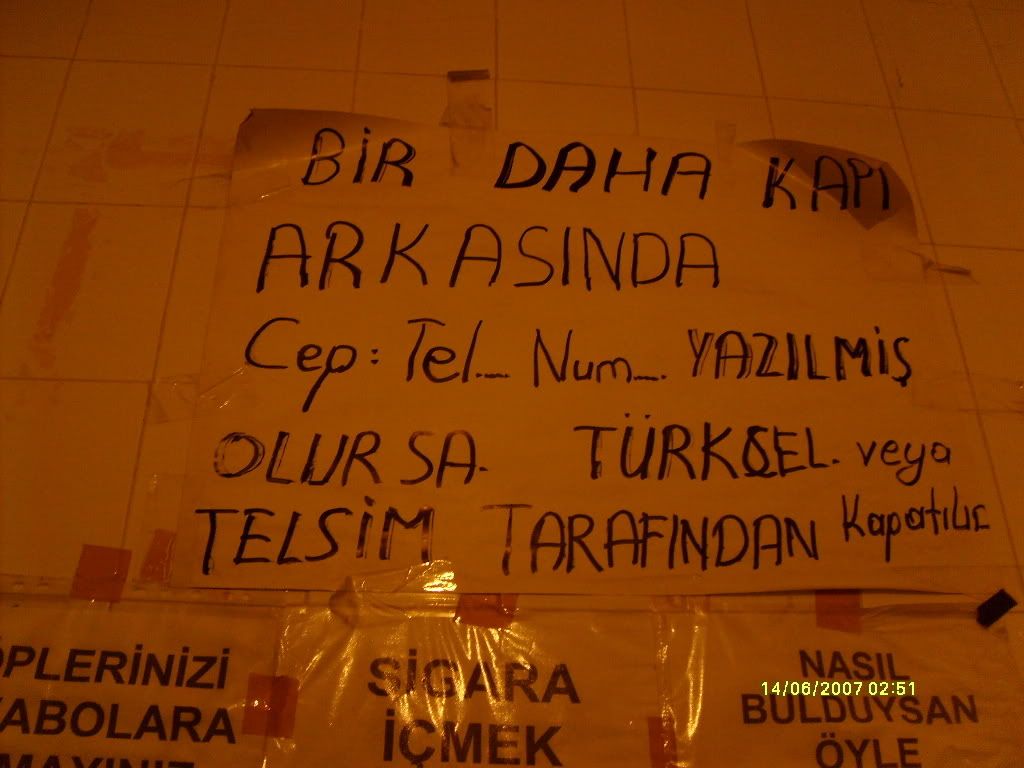 BİR DAHA KAPI
ARKASINDA
Cep: Tel... Num... YAZILMIŞ
OLURSA. TÜRKSEL. veya
TELSİM TARAFINDAN Kapatılır
ÖPLERİNİZİ
VABOLARA
MAYINIZ
SİGARA
İÇMEK
NASIL
BULDUYSAN
ÖYLE
14/06/2007 02:51